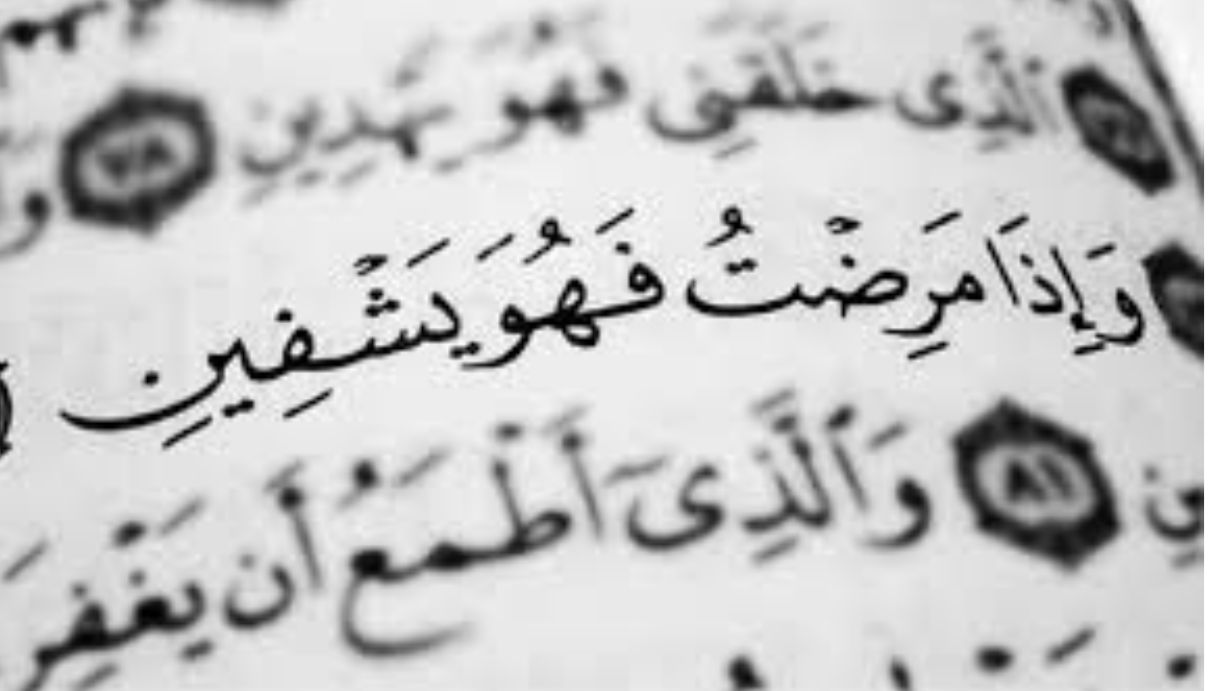 ٱلَّذِى خَلَقَنِى فَهُوَ يَهْدِينِ ٧٨
وَإِذَا مَرِضْتُ فَهُوَ يَشْفِينِ
٨١ وَٱلَّذِىٓ أَطْمَعُ أَن يَغْفِرَ